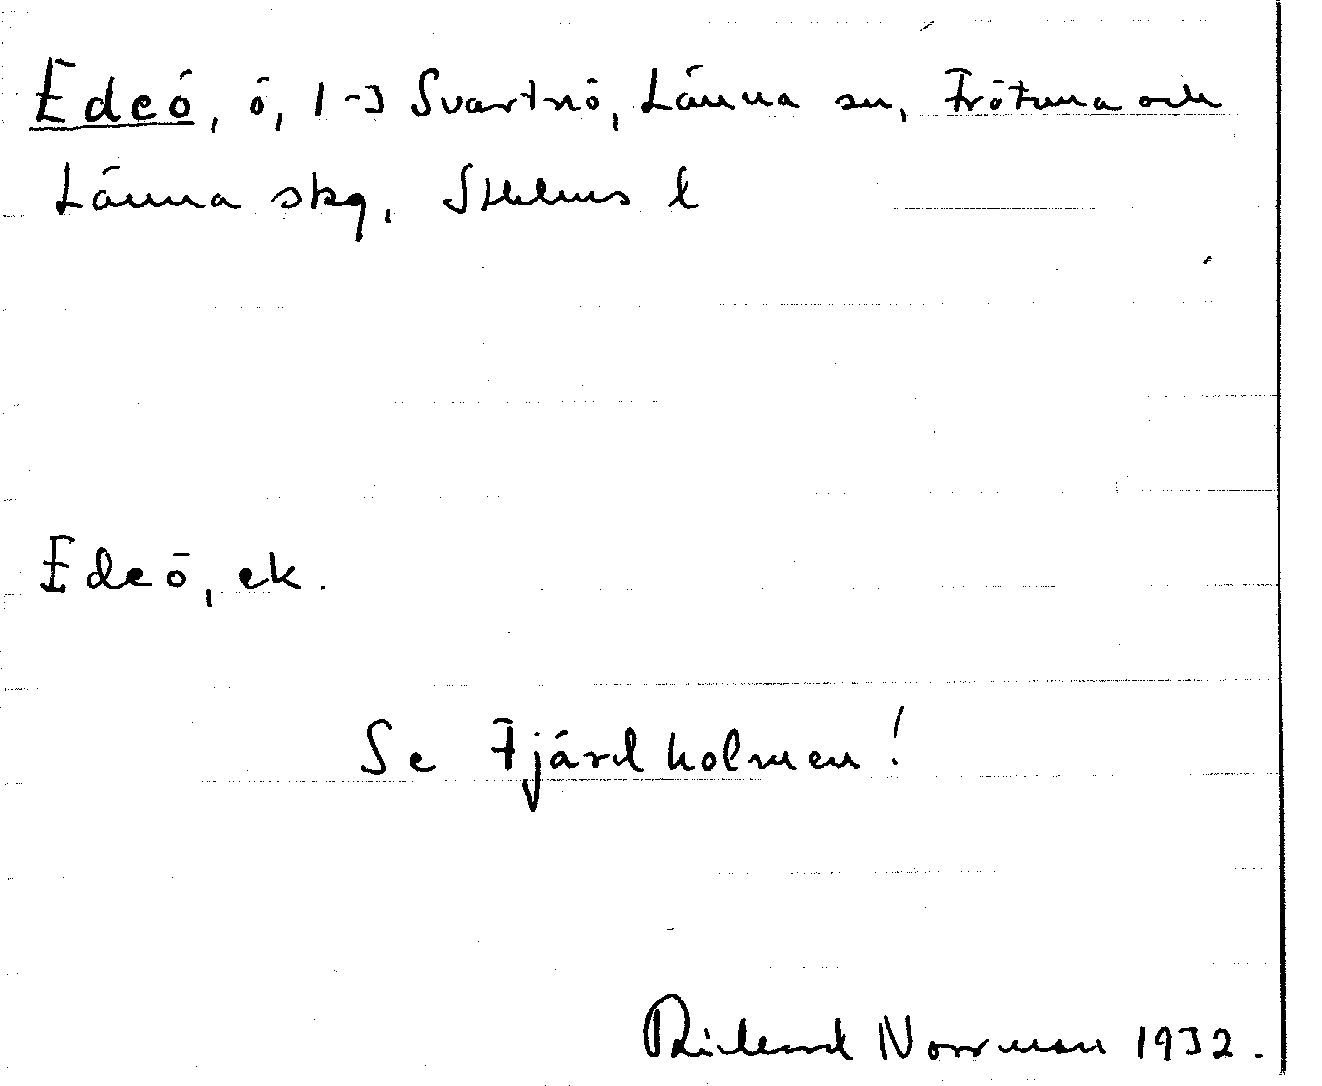 Edeö, ö, 1-3 Svartnö, Länna sn, Frötuna och
Länna skg, Sthlms l
Edeö, ek.
Se Fjärdholmen!
Rickard Norrman 1932.